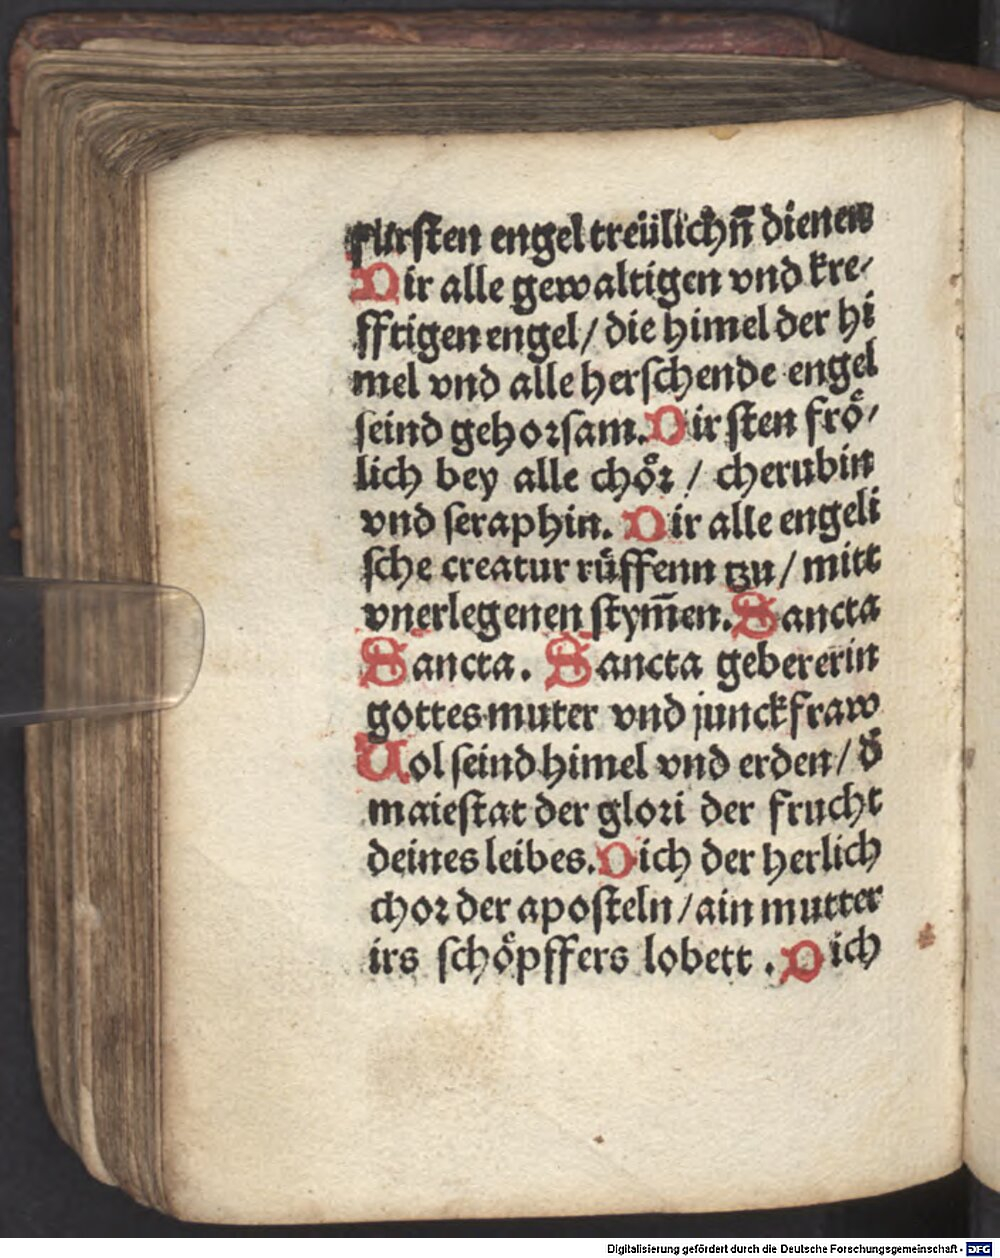 fürsten engel treülichn̄ dienen
Dir alle gewaltigen vnd kre⸗
fftigen engel / die himel der hi
mel vnd alle herschende engel
seind gehorsam. Dir sten frö⸗
lich bey alle chör / cherubin
vnd seraphin. Dir alle engeli
sche creatur rüffenn tzu / mitt
vnerlegenen stym̄en. Sancta
Sancta. Sancta gebererin
gottes muter vnd junckfraw
Uol seind himel vnd erden / d̄
maiestat der glori der frucht
deines leibes. Dich der herlich
chor der aposteln / ain mutter
irs schöpffers lobett. Dich
Digitalisierung gefördert durch die Deutsche Forschungsgemeinschaft - DFG